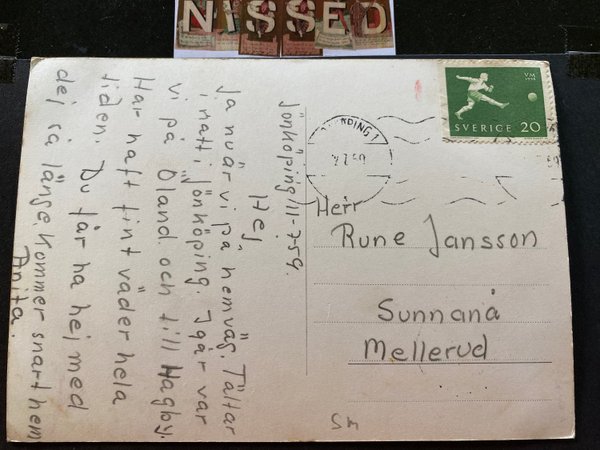 NISSED
Jönköping 11-7-59.
Hej
Ja nu är vi på hemväg. Tältar
i natt i Jönköping. Igår var
vi på Öland och till Hagby.
Har haft fint väder hela
tiden. Du får ha hej med
dej så länge. Kommer snart hem
Anita.
VM
1958
SVERIGE 20
Herr
Rune Jansson
Sunnanå
Mellerud